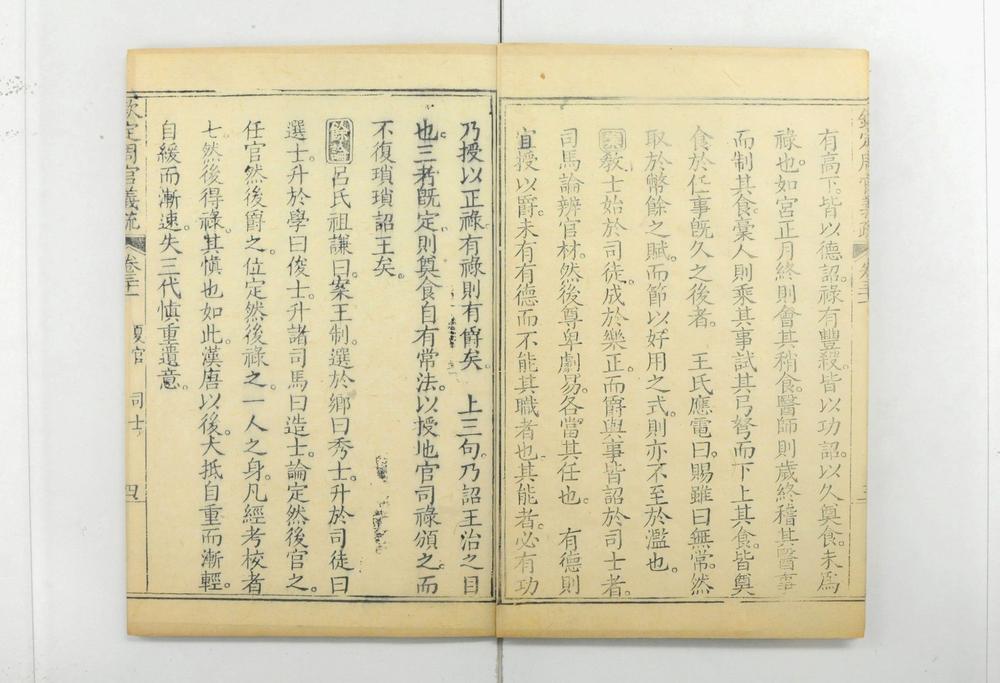 有高下。皆以德詔。祿有豐殺。皆以功詔。以久奠食。未爲
祿也。如宮正月終則會其稍食。醫師則歲終稽其醫事
而制其食。稾人則乘其事試其弓弩而下上其食。皆奠
食於任事旣久之後者。　王氏應電曰。賜雖曰無常。然
取於幣餘之賦。而節以好用之式。則亦不至於濫也。
案敎士始於司徒。成於樂正。而爵與事皆詔於司士者。
司馬論辨官材。然後尊卑劇易。各當其任也。　有德則
宜授以爵。未有有德而不能其職者也。其能者。必有功
乃授以正祿。有祿則有爵矣。　上三句。乃詔王治之目
也。三者旣定。則奠食自有常法。以授地官司祿頒之。而
不復瑣瑣詔王矣。
餘論呂氏祖謙曰。案王制。選於鄉曰秀士。升於司徒曰
選士。升於學曰俊士。升諸司馬曰造士。論定然後官之。
任官然後爵之。位定然後祿之。一人之身。凡經考校者
七。然後得祿。其愼也如此。漢唐以後。大抵自重而漸輕。
自緩而漸速。失三代愼重遺意。
欽定周官義疏
卷三十一
夏官
司士
四